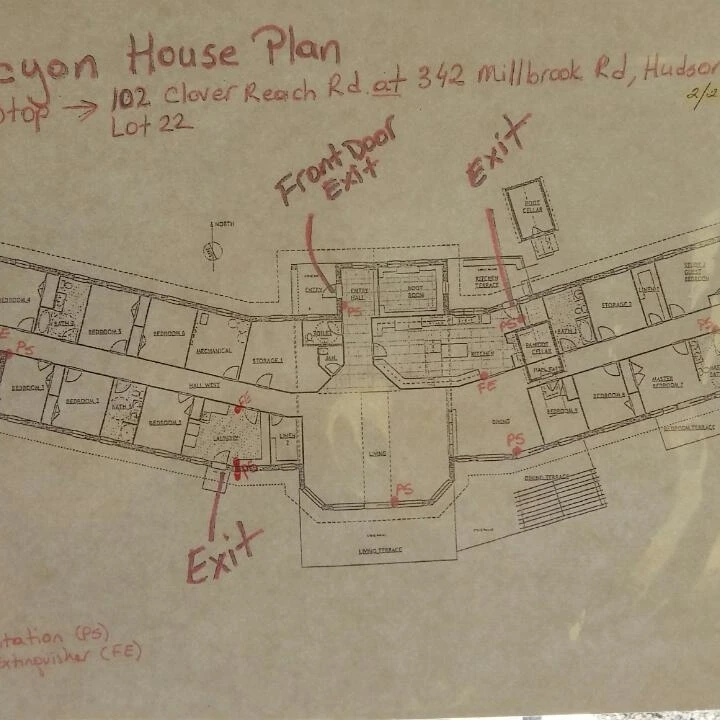 cyon House Plan
stop → 102 Clover Reach Rd. at 342 Millbrook Rd, Hudson
2/2
Lot 22
Front Door
Exit
Exit
ROOT
CELLAR
NORTH
ENTRY
ENTRY
HALL
BOOT
ROOM
KITCHEN
TERRACE
BEDROOM
BEDROOM 4
BATH
BEDROOM 5
BEDROOM 6
MECHANICAL
STORAGE 1
TOILET
JAN.
PS
KITCHEN
PS
PANTRY
CELLAR
BATH
STORAGE 2
LINEN
PS
HALL WEST
FE
HALL EAST
MASTER
BEDROOM 7
E
PS
BEDROOM
BEDROOM 2
BATH
BEDROOM 3
FE
LAUNDRY
LINEN
2
LIVING
DINING
BEDROOM
BEDROOM 8
BEDROOM TERRACE
PS
PS
PS
DINING TERRACE
Exit
LIVING TERRACE
station (PS)
extinguisher (FE)